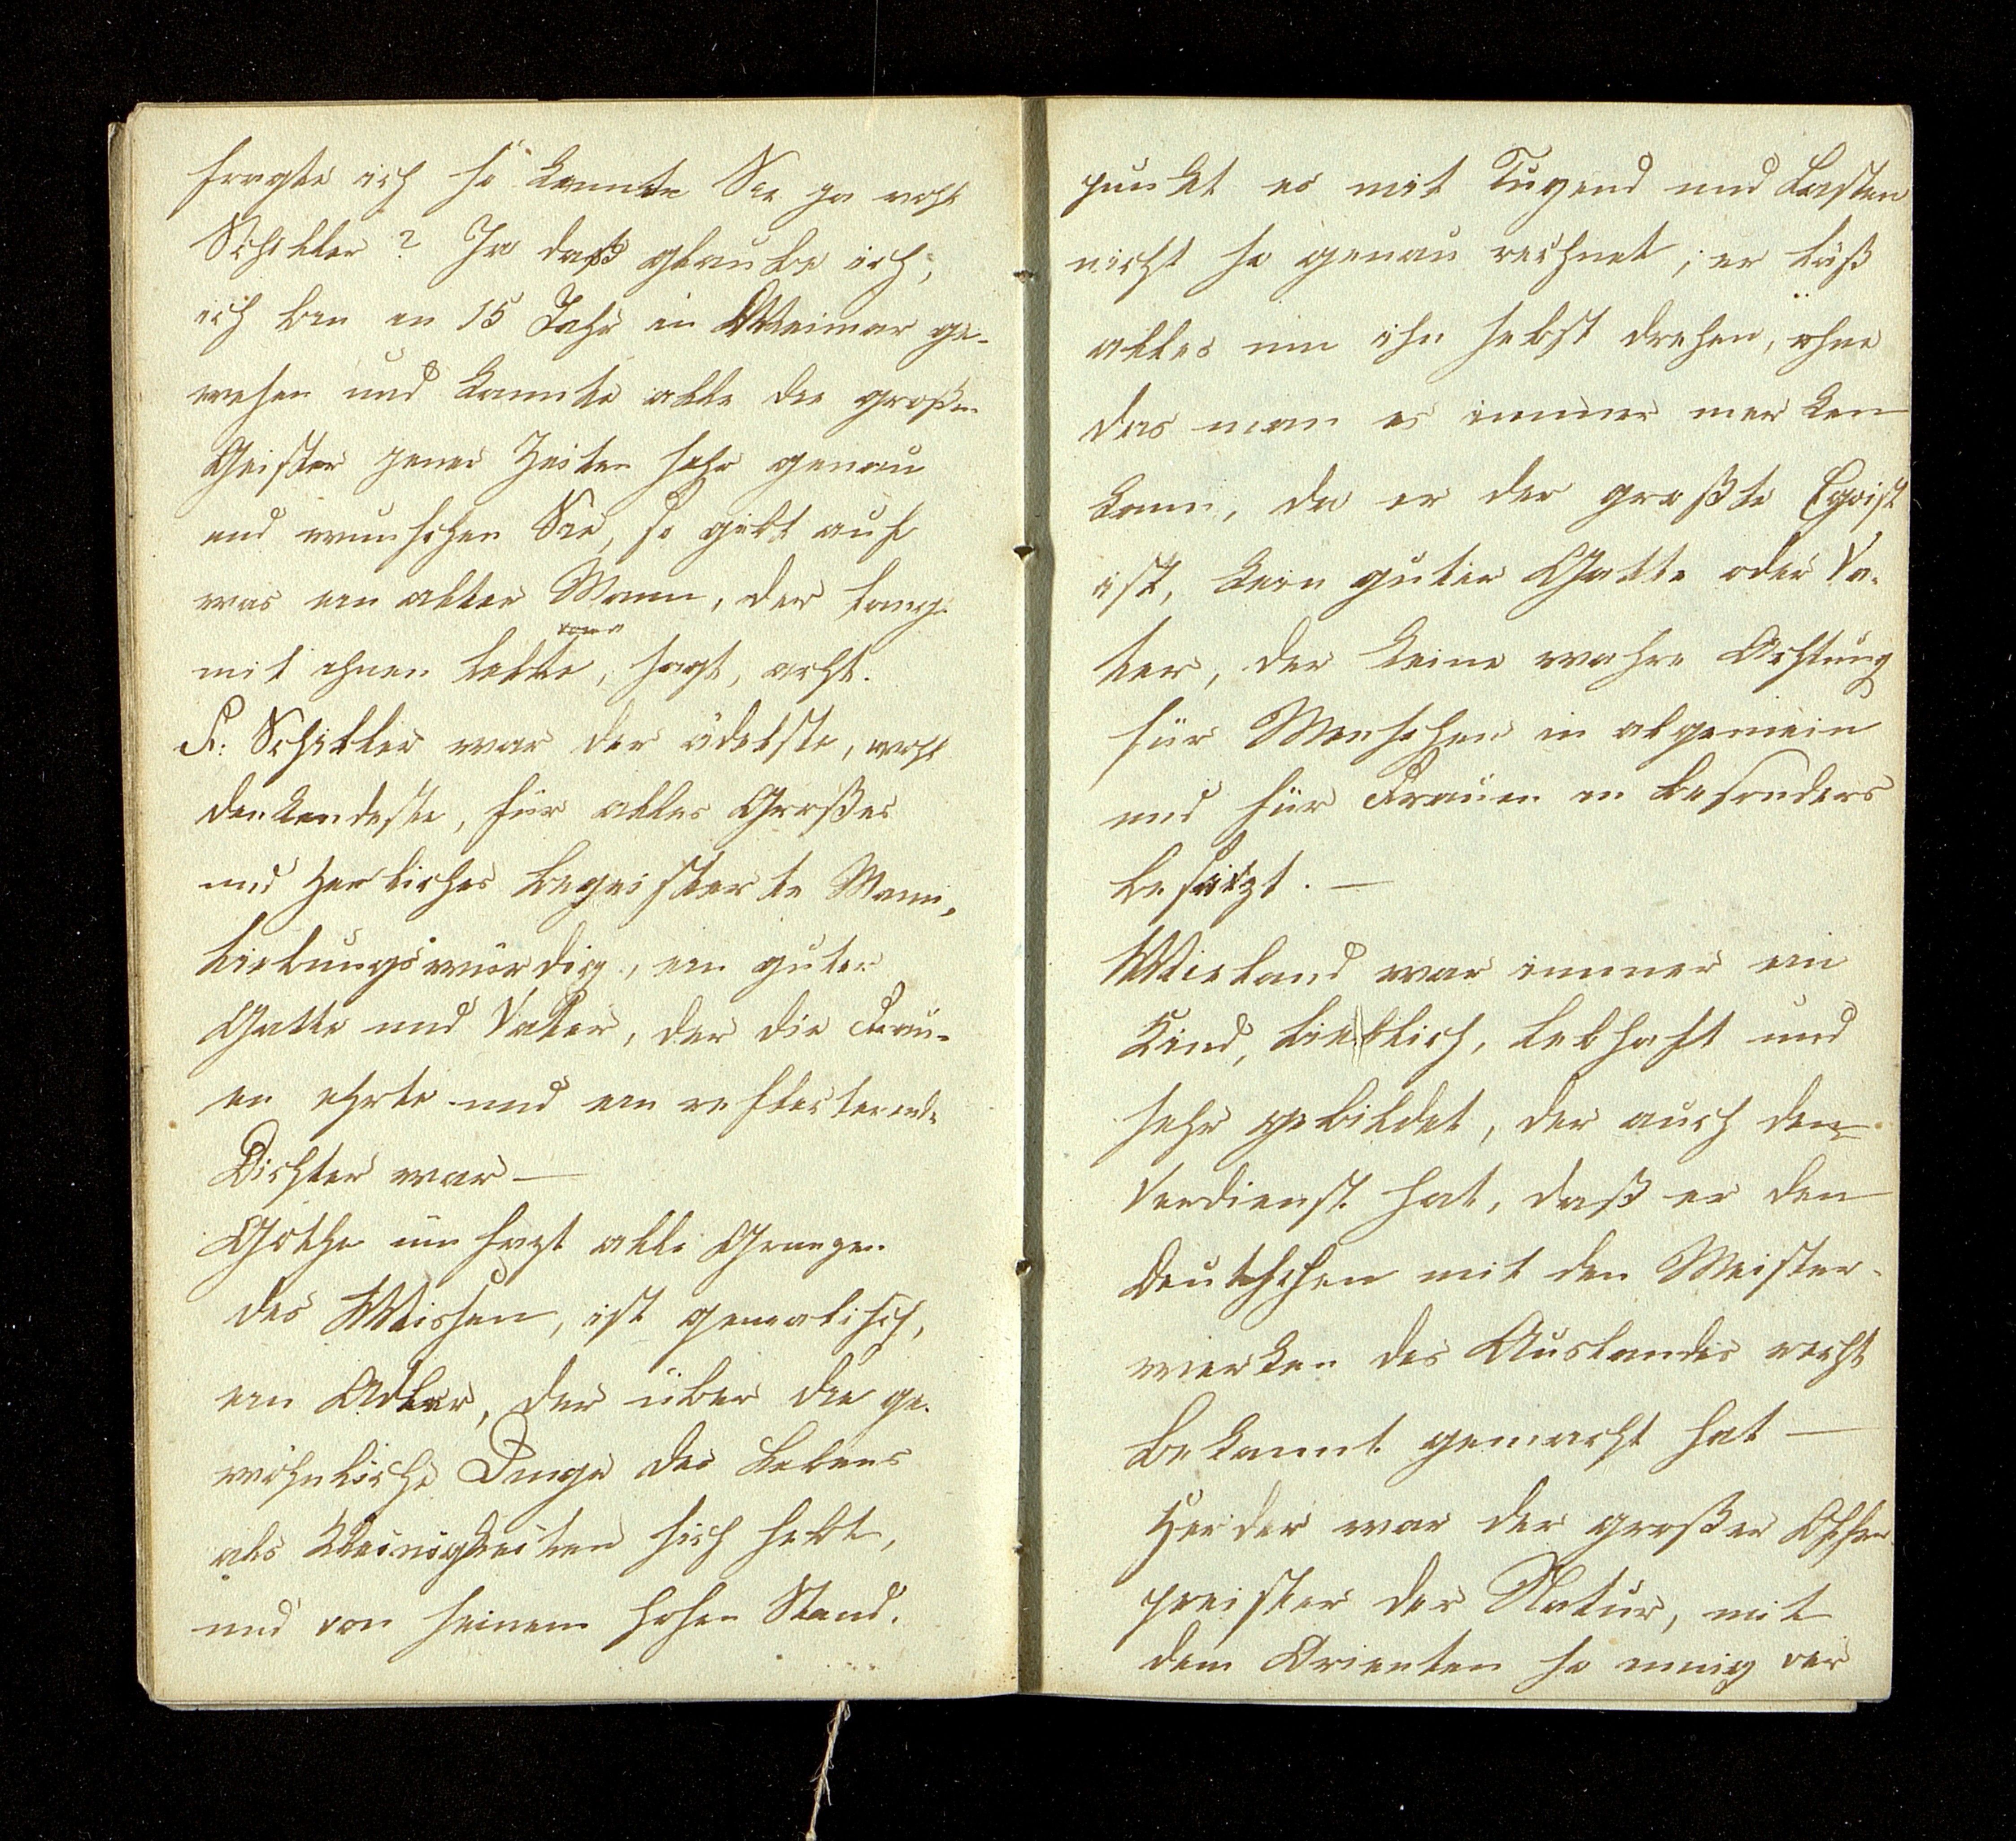 fragte ich so kannte Sie ja wohl
Schiller? Ja daß glaube ich,
ich ben en 15 Jahr in Weimar ge-
wesen und kannte alle die großen
Geister jener Zeiten sehr genau
und wunschen Sie, so gebt auf
was ein alter Mann, der lang
mit ihnen lebte, sagt, acht.
F: Schiller war der ädelste, wohl
denkendeste, für alles Großes
und Herliches begeisterte Mann,
liebungswürdig, ein guter
Gatte und Vater, der die Frau-
en ehrte und ein reflecterende
Dichter war —
Göthe umfazt alle Granzen
des Wissen, ist genealisch,
ein Adler, der über die ge-
wöhnliche Dinge des Lebens
als Kleinigkeiten sich hebt,
und von seinem hohen Stand-
punkt es mit Tugend und Lasten
nicht so genau rechnet, er läß
alles um ihn selbst drehen, ohne
das man es immer merken
kann, da er der großte Egoist
ist, kein guter Gatte oder Va-
ter, der keine wahre Achtung
für Menschen in algemein
und für Frauen en besonders
besitzt. —
Wieland war immer ein
Kind, lieblich, lebhaft und
sehr gebildet, der auch den
Verdienst hat, daß er den
Deutschen mit den Meister-
werken des Auslandes recht
bekannt gemacht hat —
Herder war der großer
preister der Natur, mit
dem Orienten so innig ver